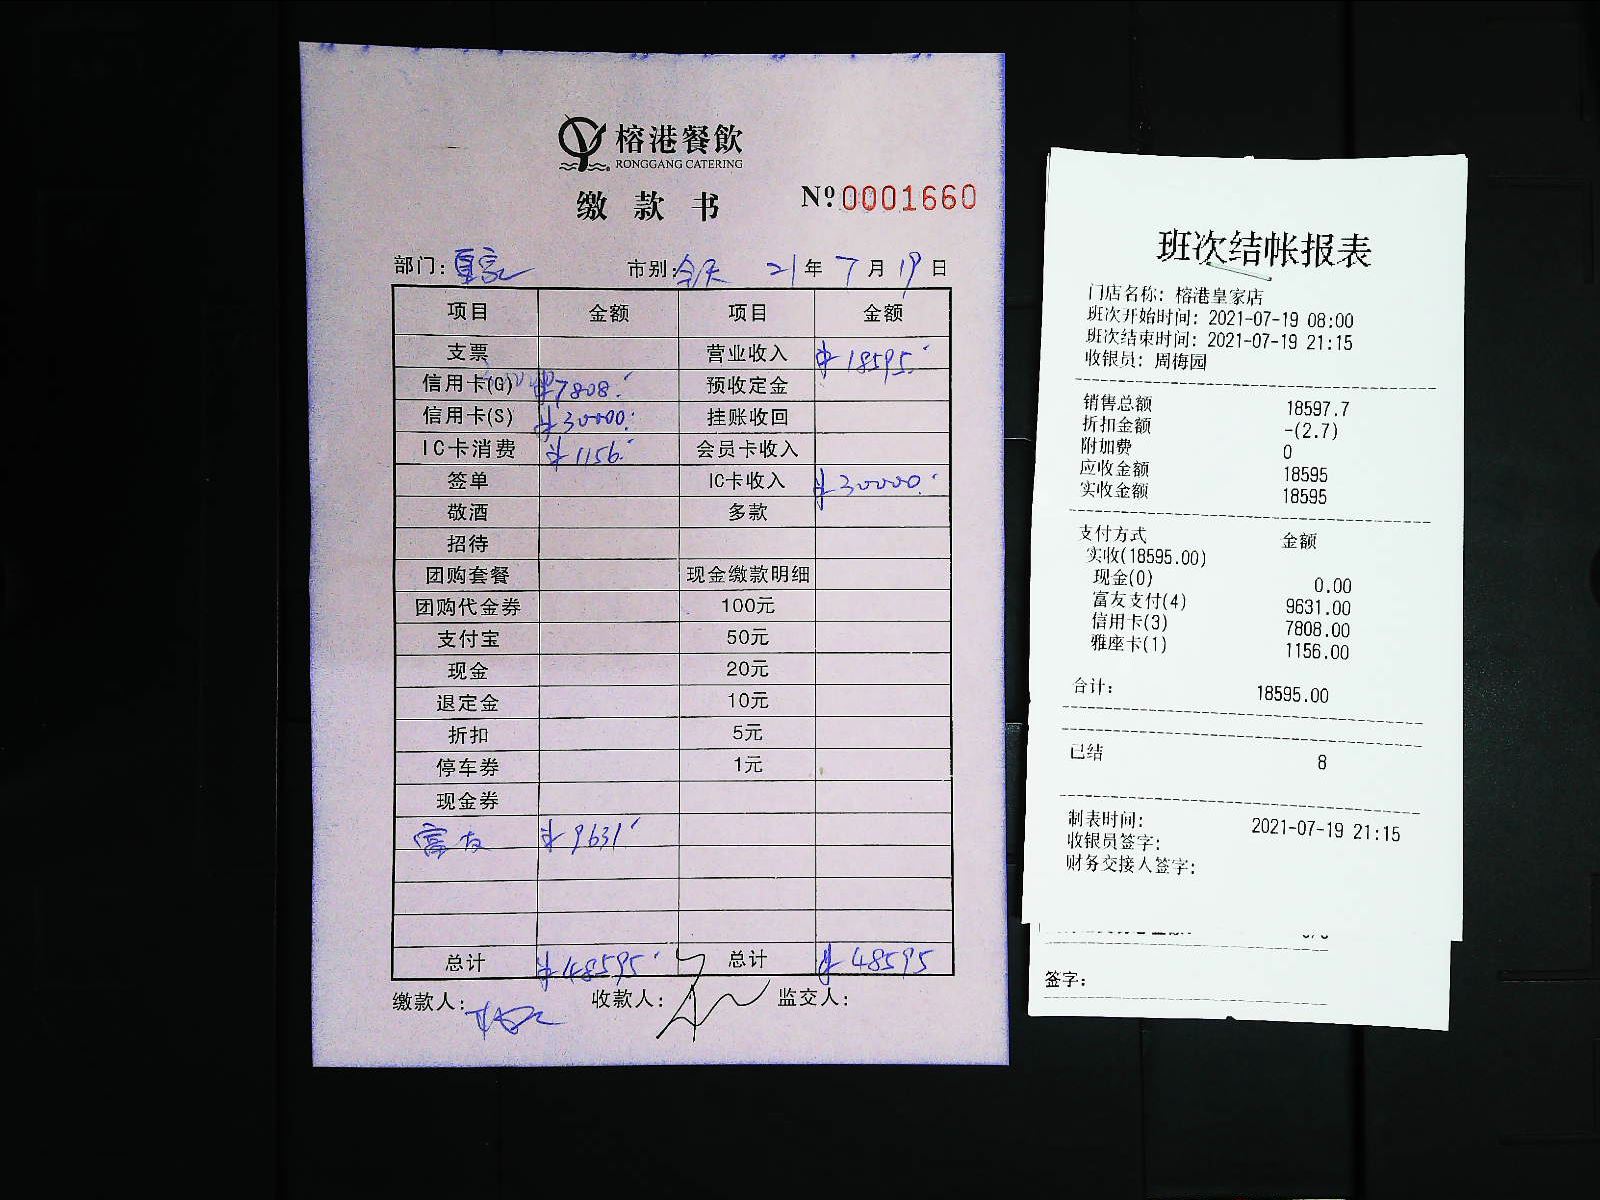 榕港餐飲
RONGGANG CATERING
缴款书
Nº 0001660
部门: 皇家 市别: 今天 21年7月19日
项目 金额 项目 金额
支票 营业收入 ¥18595.
信用卡(G) ¥7808. 预收定金
信用卡(S) ¥30000. 挂账收回
IC卡消费 ¥1156. 会员卡收入
签单 IC卡收入 ¥30000.
敬酒 多款
招待
团购套餐 现金缴款明细
团购代金券 100元
支付宝 50元
现金 20元
退定金 10元
折扣 5元
停车券 1元
现金券
富友 ¥9631
总计 ¥48595 总计 ¥48595
缴款人: 收款人: 监交人:
班次结帐报表
门店名称: 榕港皇家店
班次开始时间: 2021-07-19 08:00
班次结束时间: 2021-07-19 21:15
收银员: 周梅园
销售总额 18597.7
折扣金额 -(2.7)
附加费 0
应收金额 18595
实收金额 18595
支付方式 金额
实收(18595.00)
现金(0) 0.00
富友支付(4) 9631.00
信用卡(3) 7808.00
雅座卡(1) 1156.00
合计: 18595.00
已结 8
制表时间: 2021-07-19 21:15
收银员签字:
财务交接人签字:
签字: